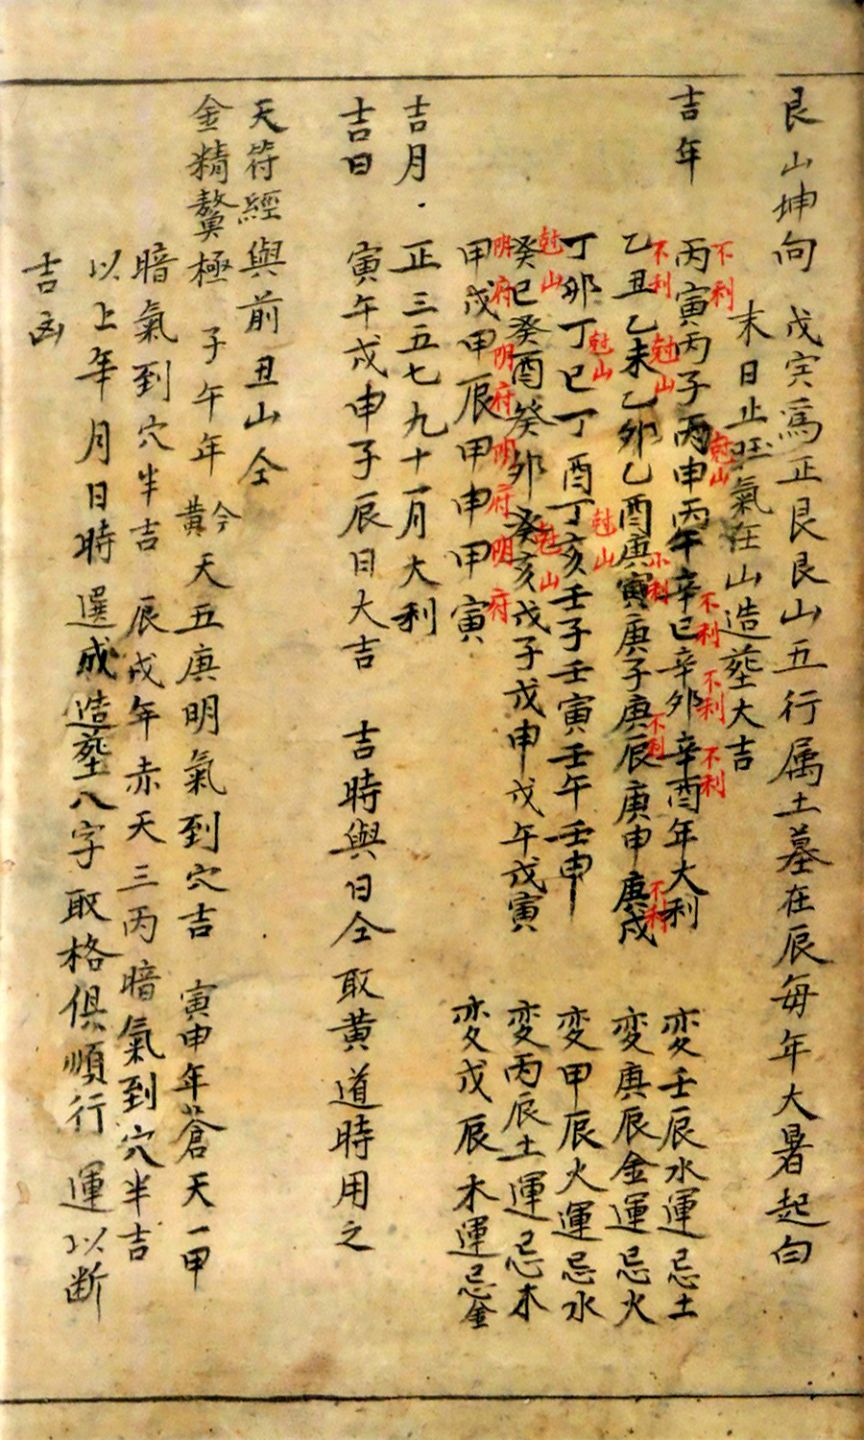 艮山坤向　戊寅為正艮艮山五行属土墓在辰每年大暑起白
末日止旺氣在山造塟大吉
吉年　丙寅丙子丙申丙午辛巳辛卯辛酉年大利　变壬辰水運忌土
不利　尅山　不利　不利　不利
乙丑乙未乙卯乙酉庚寅庚子庚辰庚申庚戌　变庚辰金運忌火
不利　尅山　小利　不利　不利
丁卯丁巳丁酉丁亥壬子壬寅壬午壬申　变甲辰火運忌水
尅山　尅山
癸巳癸酉癸卯癸亥戊子戊申戊午戊寅　变丙辰土運忌木
尅山　尅山
甲戌甲辰甲申甲寅　变戊辰木運忌金
阴府　阴府　阴府　阴府
吉月．正三五七九十一月大利
吉日　寅午戌申子辰日大吉　吉時與日仝取黄道時用之
天符經與前丑山仝
金精鰲極　子午年　黅天五庚明氣到穴吉　寅申年蒼天一甲
暗氣到穴半吉　辰戌年赤天三丙暗氣到穴半吉
以上年月日時選成造塟八字取格俱順行運以断
吉凶